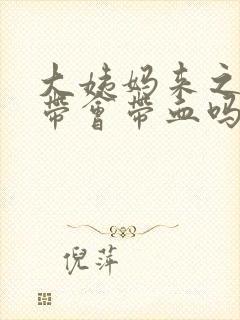 大姨妈来之
带会带血吗
倪萍